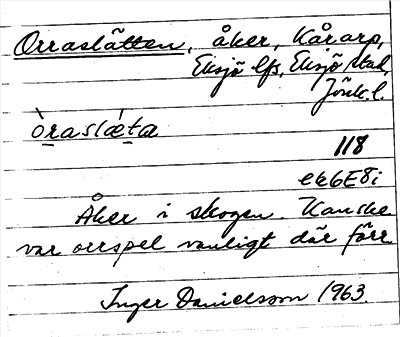 Orraslätten, åker, Kårarp,
Eksjö lfs, Eksjö stad,
Jönk. l.
òraslæ̀ta
118
ek6E8i
Åker i skogen. Kanske
var orrspel vanligt där förr.
Inger Danielsson 1963.